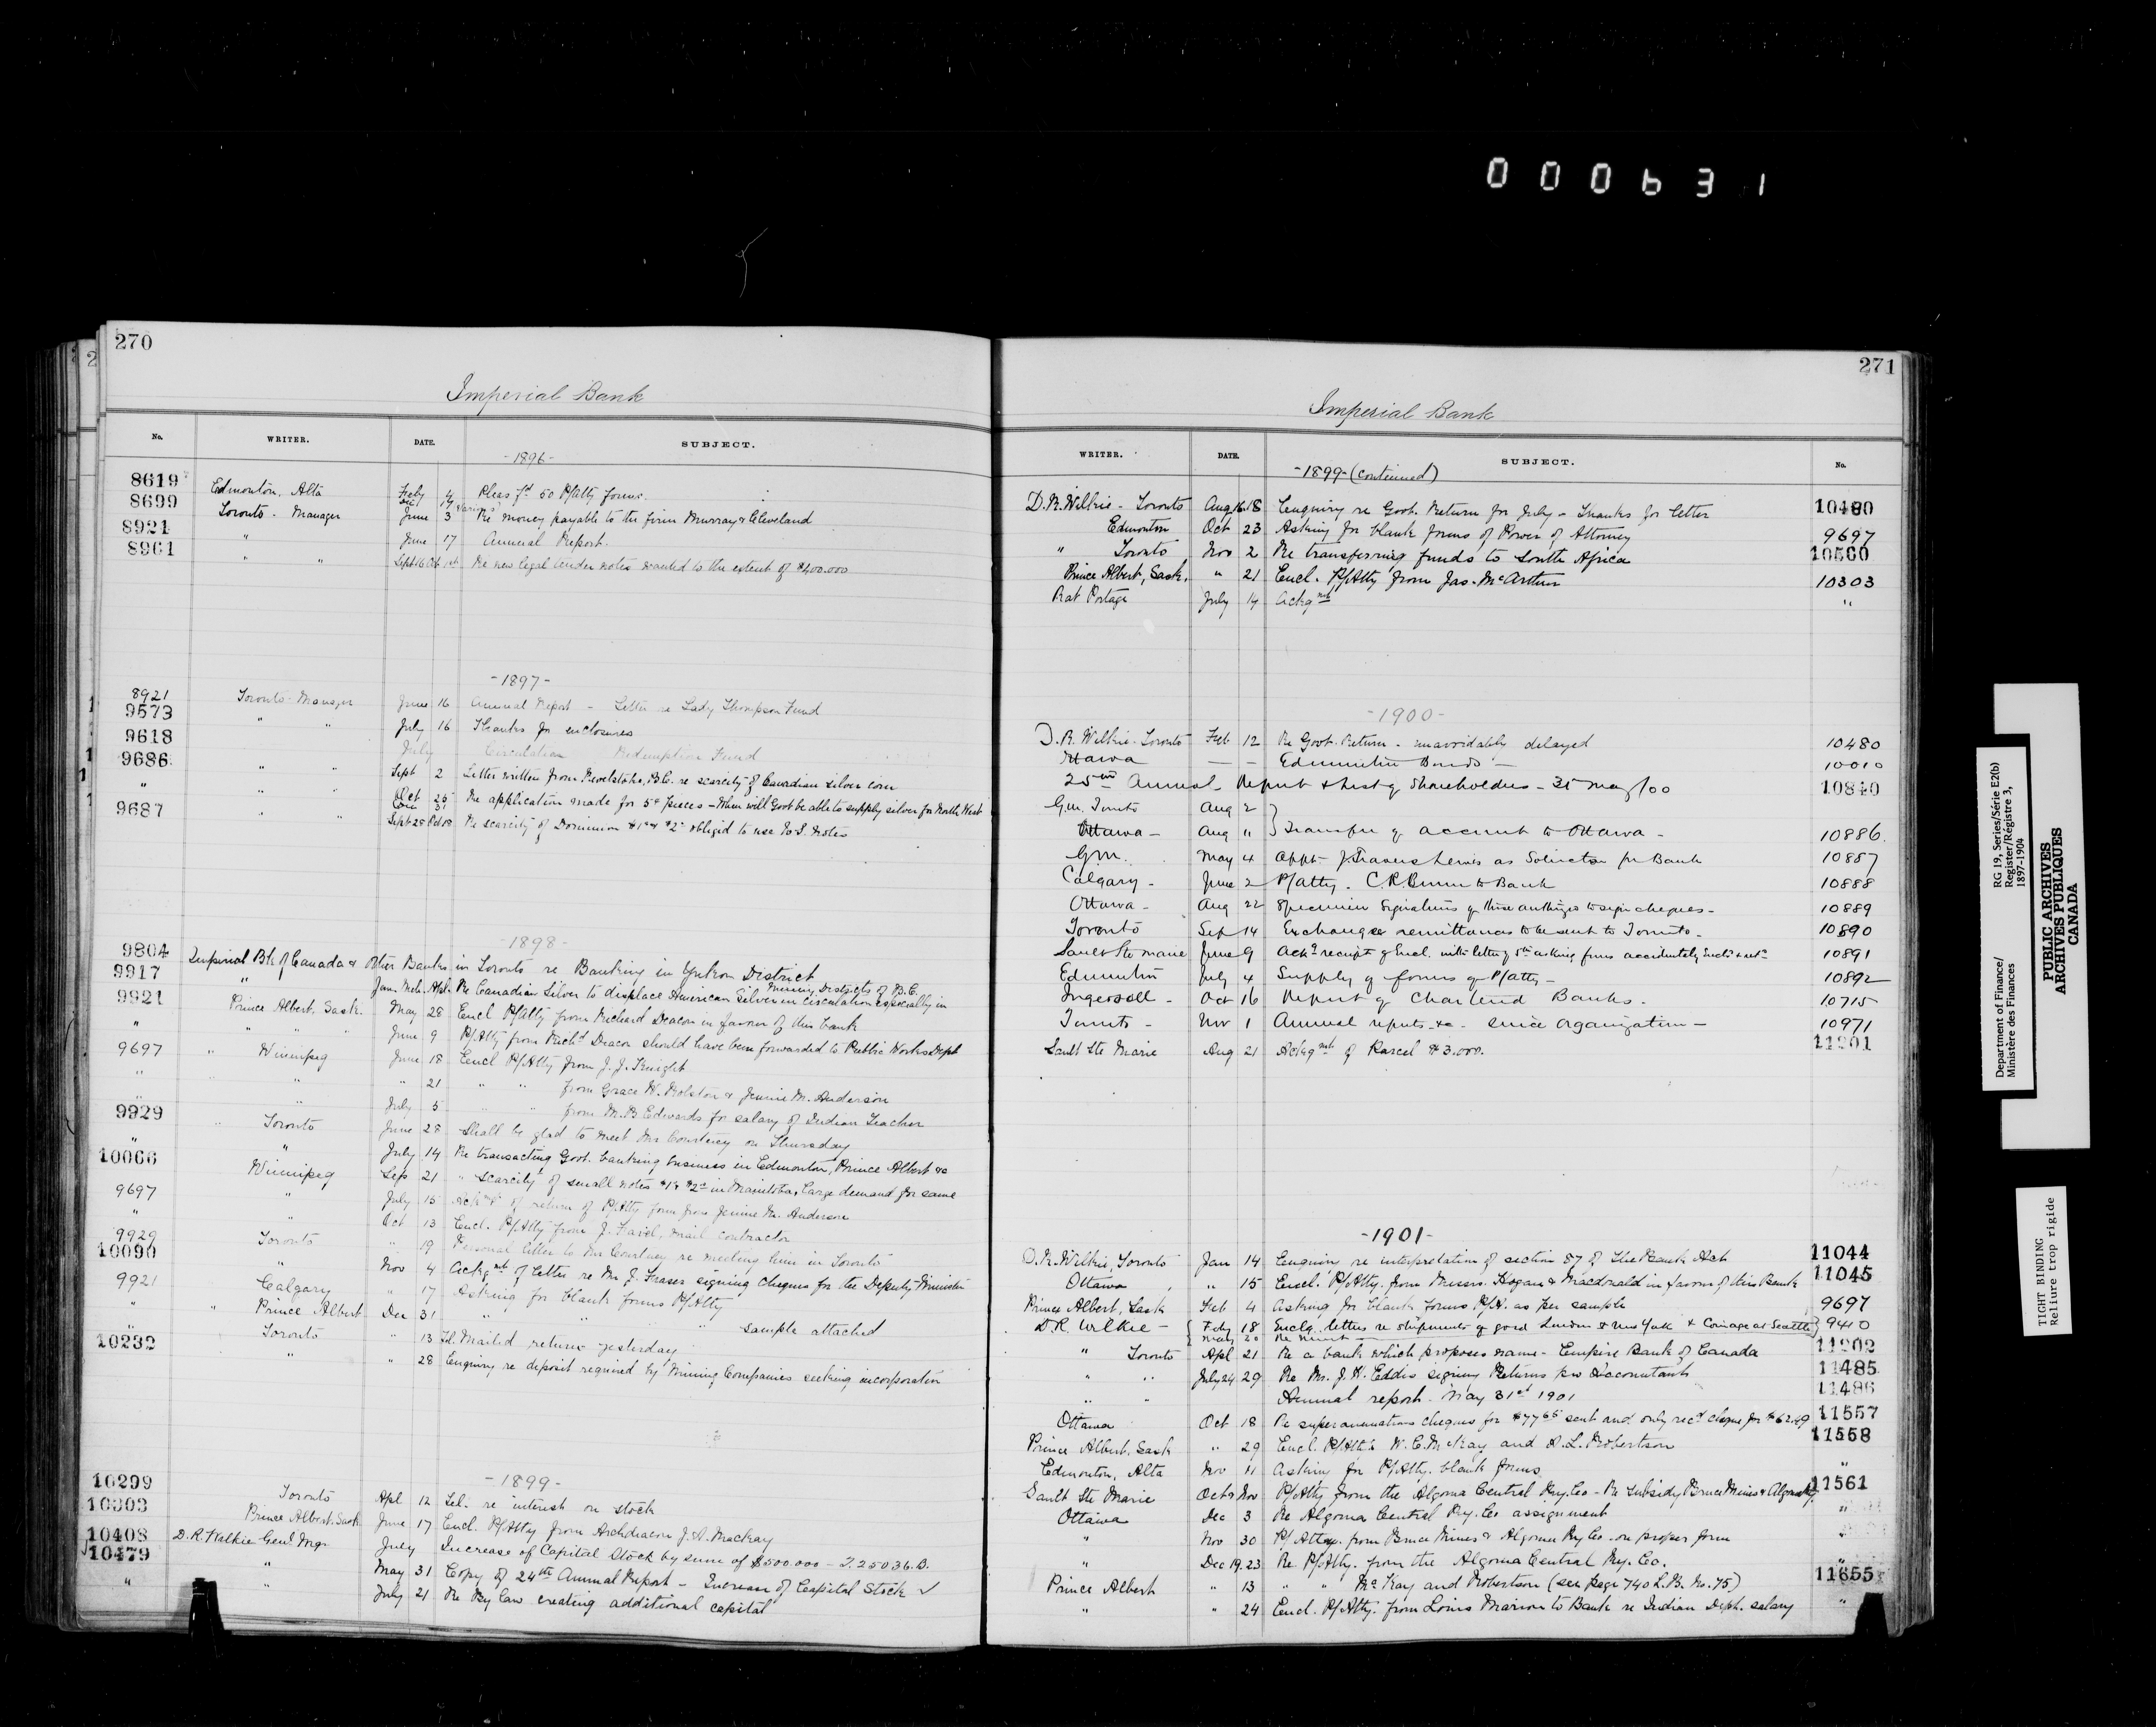 000631
270
Imperial Bank
No. WRITER. DATE. SUBJECT.
-1896-
8619 Edmonton, Alta Feby 4 Pleas fd 50 P/Atty forms.
8699 Toronto - Manager June 3 Re money payable to the firm Murray & Cleveland
8921 " June 17 Annual Report.
8961 " " Sept 16 Oct 1st Re new legal tender notes wanted to the extent of $400.000
-1897-
8921 Toronto - Manager June 16 Annual Report - Letter re Lady Thompson Fund
9573 " " July 16 Thanks for enclosures
9618 July Circulation Redemption Fund
9686 " " Sept 2 Letter written from Revelstoke, B.C. re scarcity of Canadian silver coin
" " " Oct 25 Re application made for 5c pieces - When will Govt be able to supply silver for North West
9687 " " Sept 28 Oct 18 Re scarcity of Dominion $1s & $2s obliged to use U.S. Notes
-1898-
9804 Imperial Bk of Canada & Other Banks in Toronto re Banking in Yukon District
9917 " Jan. Mch. Apl. Re Canadian Silver to displace American Silver in circulation especially in Mining Districts of B.C.
9921 Prince Albert, Sask. May 28 Encl P/Atty from Richard Deacon in favor of this bank
" " " June 9 P/Atty from Richd Deacon should have been forwarded to Public Works Dept
9697 " Winnipeg June 18 Encl P/Atty from J. J. Knight
" " " 21 " " from Grace W. Rolston & Jennie M. Anderson
" " July 5 " " from M. B Edwards for salary of Indian Teacher
9929 " Toronto June 28 Shall be glad to meet Mr Courtney on Thursday
" " July 14 Re transacting Govt. banking business in Edmonton, Prince Albert &c
10066 Winnipeg Sep 21 " scarcity of small notes $1s $2s in Manitoba, large demand for same
9697 " July 15 Ackgt of return of P/Atty form from Jennie M. Anderson
" " Oct 13 Encl. P/Atty from J. Favel, mail contractor
9929 Toronto " 19 Personal letter to Mr Courtney re meeting him in Toronto
10090 " Nov 4 Ackgmt of letter re Mr J. Fraser signing cheques for the Deputy Minister
9921 Calgary " 17 Asking for blank forms P/Atty
" " Prince Albert Dec 31 " " " " sample attached
" Toronto " 13 Tel. Mailed return yesterday
10232 " " 28 Enquiry re deposit required by Mining Companies seeking incorporation
-1899-
10299 Toronto Apl 12 Tel. re interest on stock
10303 Prince Albert. Sask June 17 Encl. P/Atty from Archdeacon J. A. Mackay
10408 D. R. Wilkie Genl. Mgr July Increase of Capital Stock by sum of $500.000 - T. 25036.B.
10479 " " May 31 Copy of 24th Annual Report - Increase of Capital Stock ✓
" " July 21 Re By Law creating additional capital
271
Imperial Bank
WRITER. DATE. SUBJECT. No.
-1899- (continued)
D. R. Wilkie - Toronto Aug 16 18 Enquiry re Govt. Return for July - Thanks for letter 10480
Edmonton Oct 23 Asking for blank forms of Power of Attorney 9697
" Toronto Nov 2 Re transferring funds to South Africa 10560
Prince Albert, Sask. " 21 Encl. P/Atty from Jas. McArthur 10303
Rat Portage July 14 Ackgmt "
-1900-
D. R. Wilkie - Toronto Feb 12 Re Govt. Return - unavoidably delayed 10480
Ottawa — — Edmonton Bonds — 10010
25th Annual Report & List of Shareholders - 31 May/00 10840
G.M. Toronto Aug 2
Ottawa - Aug " } Transfer of account to Ottawa - 10886
G.M. May 4 Appt. J. Travers Lewis as Solicitor for Bank 10887
Calgary - June 2 P/Atty. C. R. to Bank 10888
Ottawa - Aug 22 Specimen Signatures of those authorized to sign cheques - 10889
Toronto Sep 14 Exchange remittances to be sent to Toronto - 10890
Sault Ste Marie June 9 Ackg receipt of Encl. with letter of 5th asking forms accidentally 10891
Edmonton July 4 Supply of forms of P/Atty - 10892
Ingersoll - Oct 16 Report of Chartered Banks - 10715
Toronto - Nov 1 Annual reports &c - since organization - 10971
Sault Ste Marie Aug 21 Ackgmt of Parcel $3.000. 11201
-1901-
D. R. Wilkie, Toronto Jan 14 Enquiry re interpretation of section 87 of The Bank Act 11044
Ottawa " 15 Encl. P/Atty. from Messrs. Hogan & Macdonald in favor of this Bank 11045
Prince Albert, Sask Feb 4 Asking for blank forms P/A. as per sample 9697
D. R. Wilkie - { Feby 18 Enclg. letters re shipments of gold London & New York & Coinage at Seattle } 9410
May 20 Re Mint
" Toronto Apl 21 Re a bank which proposes name - Empire Bank of Canada 11202
" " July 24 29 Re Mr. J. H. Eddis signing Returns pro Accountants 11485
" " Annual report - May 31st 1901 11486
Ottawa Oct 18 Re superannuation cheques for $77.65 sent and only recd cheque for $62.49 11557
Prince Albert, Sask " 29 Encl. P/Attys W. C. McKay and A. L. Robertson 11558
Edmonton, Alta Nov 11 Asking for P/Atty. blank forms "
Sault Ste Marie Oct & Nov P/Atty from the Algoma Central Ry. Co - Re Subsidy Bruce Mines & Algoma Ry. 11561
Ottawa Dec 3 Re Algoma Central Ry. Co assignment "
" Nov 30 P/Atty. from Bruce Mines & Algoma Ry Co. on proper form "
" Dec 19. 23 Re P/Atty. from the Algoma Central Ry. Co. "
Prince Albert " 13 " " McKay and Robertson (see page 740 L. B. No. 75) 11655
" " 24 Encl. P/Atty. from Louis Marion to Bank re Indian Dept. salary "
Department of Finance/
Ministère des Finances
RG 19, Series/Série E2(b)
Register/Régistre 3,
1897-1904
PUBLIC ARCHIVES
ARCHIVES PUBLIQUES
CANADA
TIGHT BINDING
Reliure trop rigide